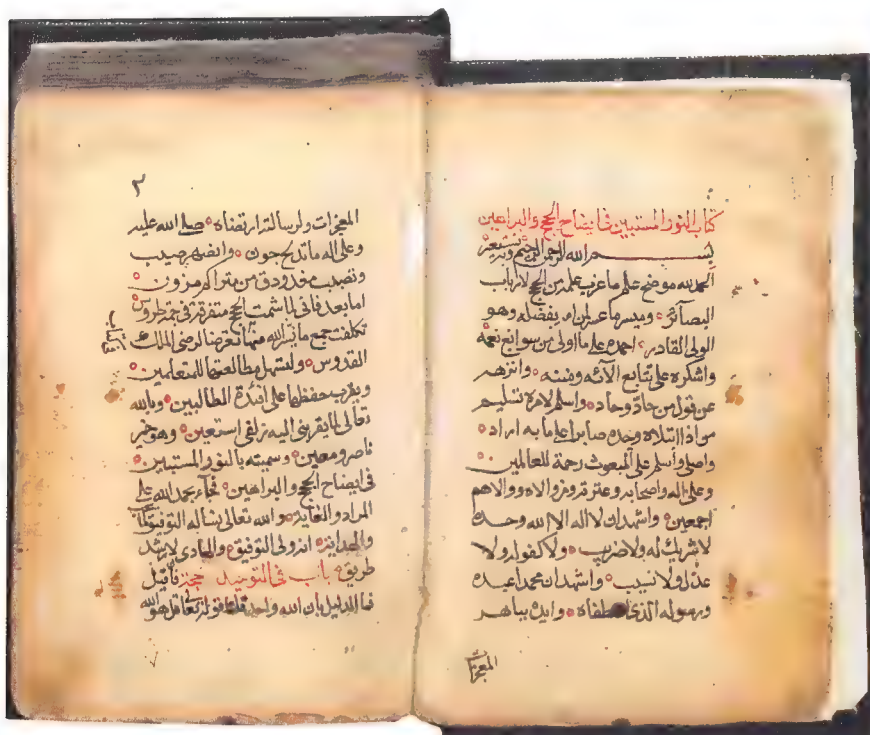 كتاب النور المستبين في ايضاح الحجج والبراهين
بسم الله الرحمن الرحيم وبه نستعين
الحمد لله موضح علم ما عزب علمه من الحجج لارباب
البصآئر وميسر ما عسر ان ام بفضله وهو
الولي القادر احمده على ما اولى من سوابغ نعمه
واشكره على تتابع الآئه ومننه وانزهه
عن قول من حادّ وحاد واسلم لامره تسليم
من اذا ابتلاه وجده صابرا على ما به اراد
واصلي واسلم على المبعوث رحمة للعالمين
وعلى اله واصحابه وعترته ومن والاه ووالاهم
اجمعين واشهد ان لا اله الا الله وحده
لا شريك له ولا ضريب ولا كفو له ولا
عدل ولا نسيب واشهد ان محمدا عبده
ورسوله الذي اصطفاه وايده بباهر
المعجزات
٢
المعجزات ولرسالته ارتضاه صلى الله عليه
وعلى اله ما تدلج جون وانضهر صيب
وتصبب مغدودق من متراكم مزون
اما بعد فاني لما شمت الحجج متفرقة في جمة طروس
تكلفت جمع ما يسر الله منها تعرضا لرضى الملك
القدوس وليسهل مطالعتها للمتعلمين
ويقرب حفظها على افئدة الطالبين وبالله
تعالى لما يقربني اليه زلفى استعين وهو خير
ناصر ومعين وسميته بالنور المستبين
في ايضاح الحجج والبراهين فجآء بحمد الله على
المراد والغاية والله تعالى نساله التوفيق لما يحب
والهداية انه ولي التوفيق والهادي لارشد
طريق باب في التوحيد حجة فان قيل
فما الدليل بان الله واحد قلنا قوله تعالى قل هو الله